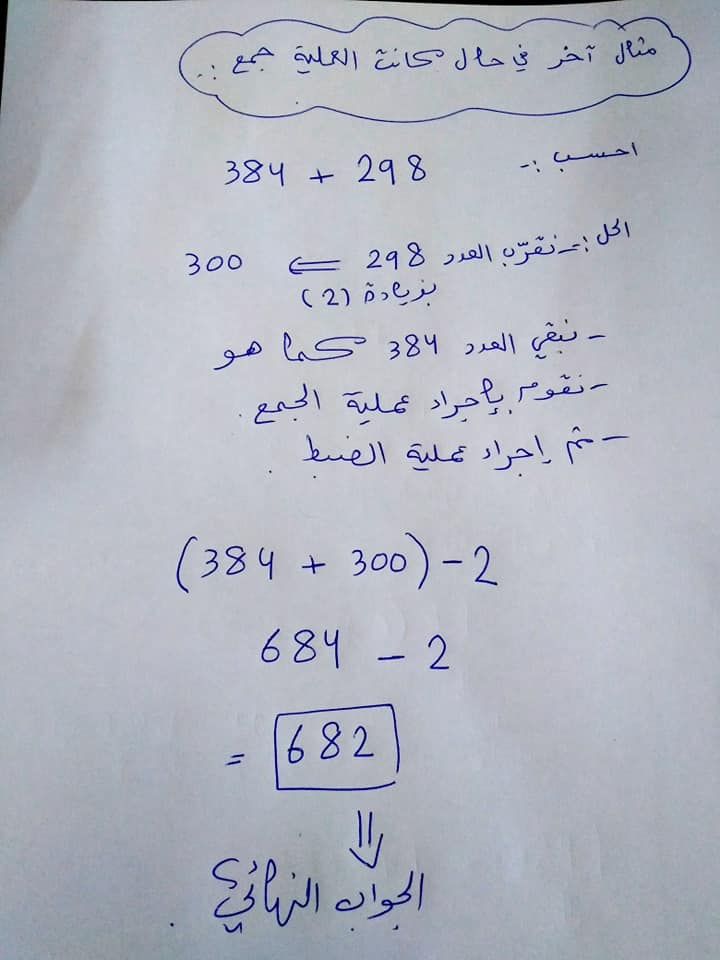 مثال آخر في حال كانت العملية جمع :.
احسب :- 384 + 298
الحل :- نقرّب العدد 298 ⇐ 300
بزيادة (2)
- نبقي العدد 384 كما هو
- نقوم بإجراء عملية الجمع .
- ثم إجراء عملية الضبط .
(384 + 300) - 2
684 - 2
= 682
⇓
الجواب النهائي .